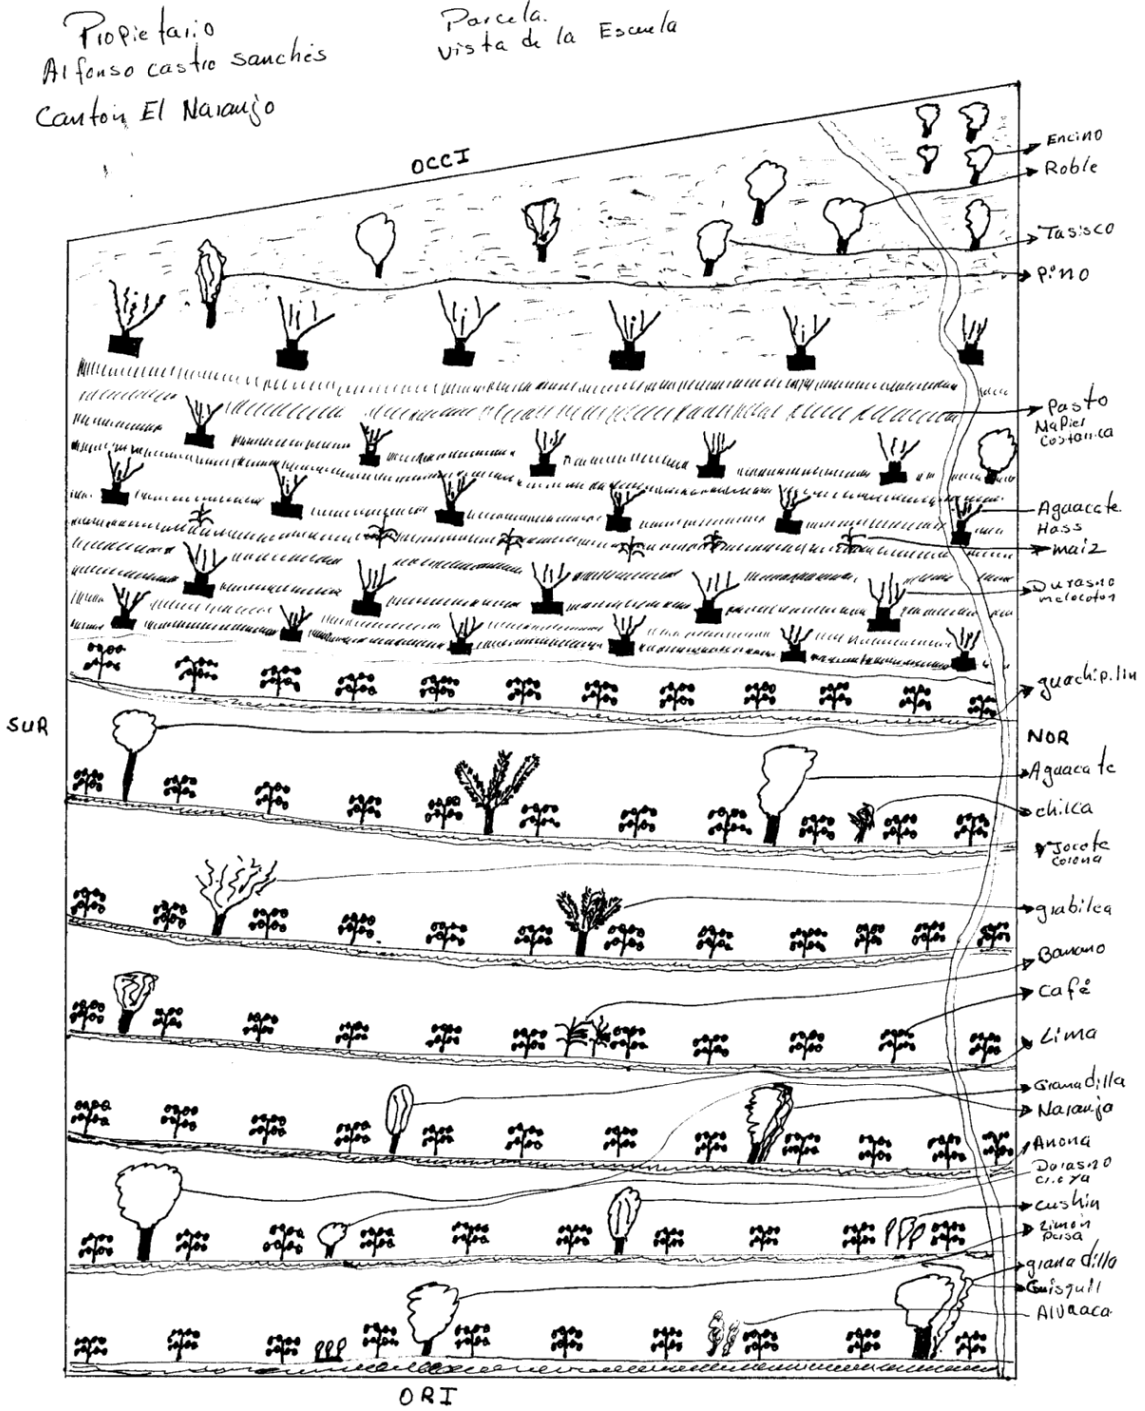 Propietario
Alfonso castro sanchés
Cantón El Naranjo
Parcela.
vista de la Escuela
OCCI
Encino
Roble
Tasisco
Pino
Pasto
Napier
Costarica
Aguacate
Hass
maiz
Durasno
melocoton
guachipilin
SUR
NOR
Aguacate
chilca
Jocote
corona
grabilea
Banano
café
Lima
Granadilla
Naranja
Anona
Durasno
cushin
Limón
granadilla
Guisquil
ORI